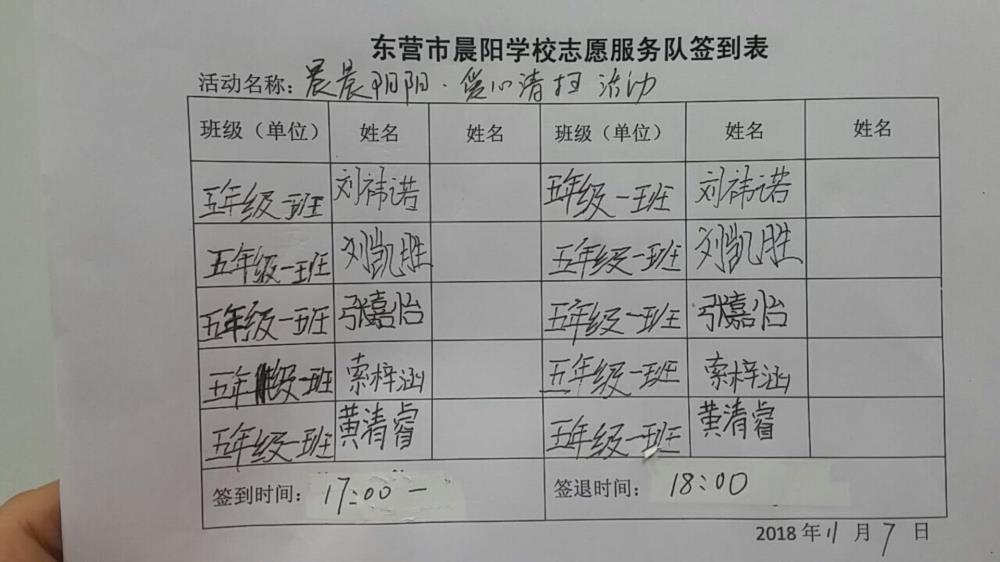 东营市晨阳学校志愿服务队签到表
活动名称：晨晨阳阳·爱心清扫活动
班级（单位） 姓名 姓名 班级（单位） 姓名 姓名
五年级一班 刘祎诺 五年级一班 刘祎诺
五年级一班 刘凯胜 五年级一班 刘凯胜
五年级一班 张嘉怡 五年级一班 张嘉怡
五年级一班 索梓涵 五年级一班 索梓涵
五年级一班 黄清睿 五年级一班 黄清睿
签到时间：17:00一 签退时间：18:00
2018年11月7日